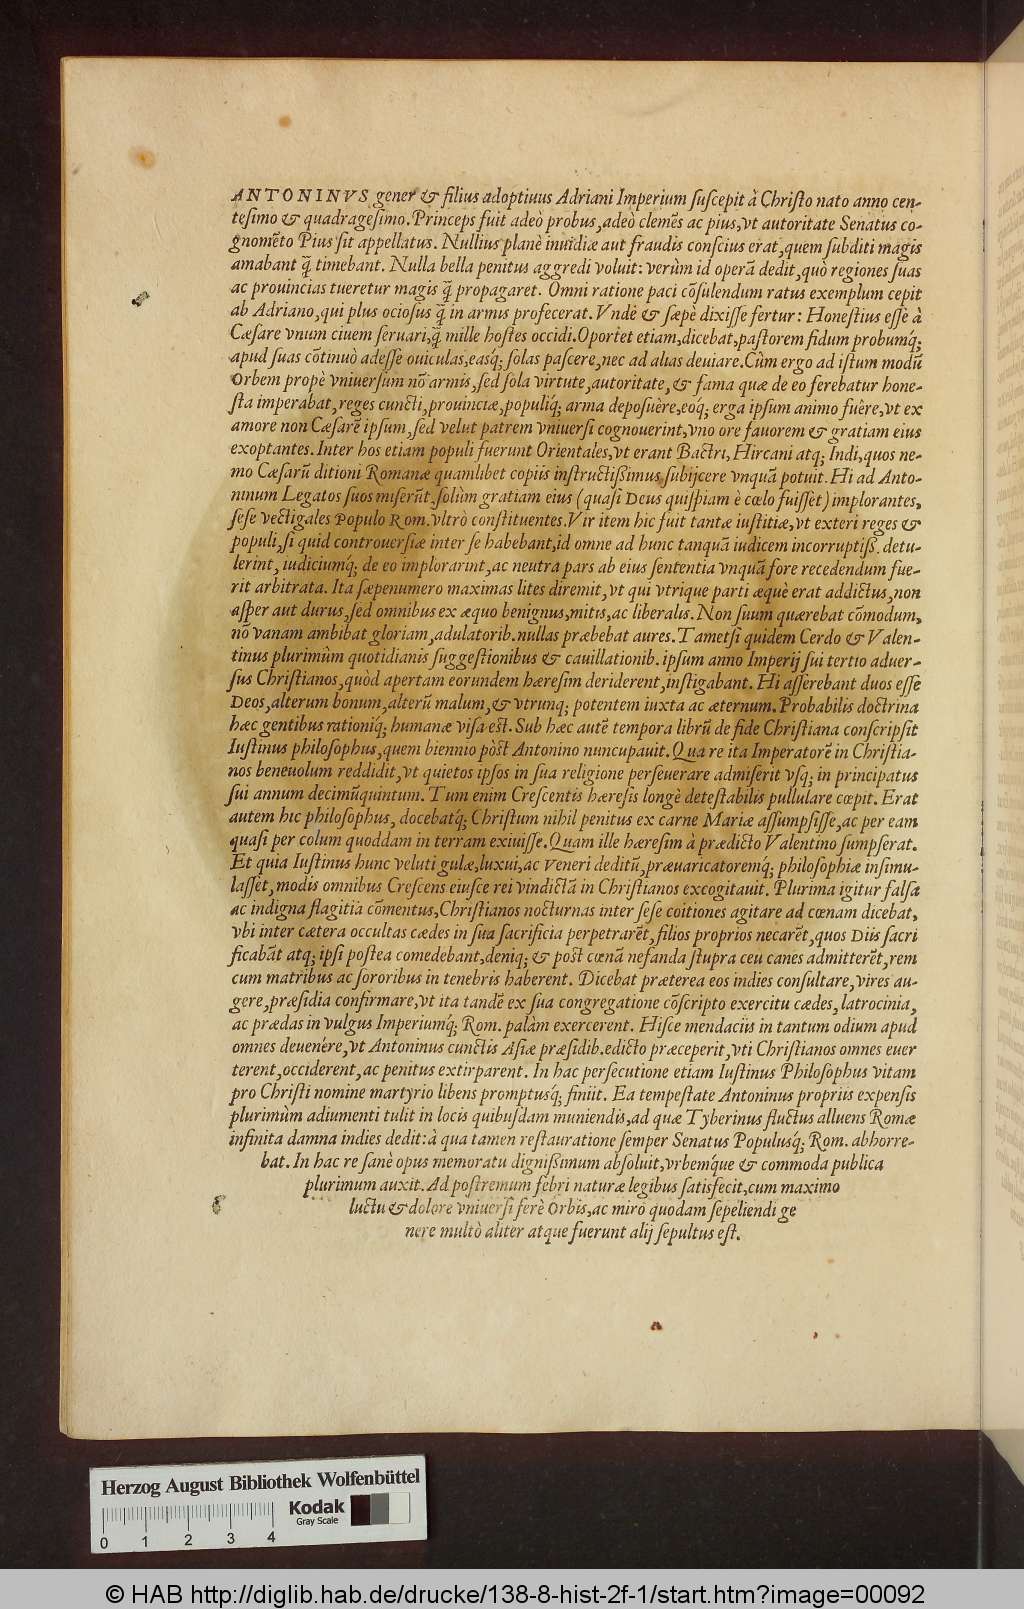 ANTONINVS gener & filius adoptiuus Adriani Imperium ſuſcepit à Chriſto nato anno cen-
teſimo & quadrageſimo. Princeps fuit adeò probus, adeò clemẽs ac pius, vt autoritate Senatus co-
gnomẽto Pius ſit appellatus. Nullius planè inuidiæ aut fraudis conſcius erat, quem ſubditi magis
amabant q̃ timebant. Nulla bella penitus aggredi voluit: verùm id operã dedit, quò regiones ſuas
ac prouincias tueretur magis q̃ propagaret. Omni ratione paci cõſulendum ratus exemplum cepit
ab Adriano, qui plus ocioſus q̃ in armis profecerat. Vnde & ſæpè dixiſſe fertur: Honeſtius eſſe à
Cæſare vnum ciuem ſeruari, q̃ mille hoſtes occidi. Oportet etiam, dicebat, paſtorem fidum probumq́;
apud ſuas cõtinuò adeſſe ouiculas, eaſq; ſolas paſcere, nec ad alias deuiare. Cùm ergo ad iſtum modũ
Orbem propè vniuerſum nõ armis, ſed ſola virtute, autoritate, & fama quæ de eo ferebatur hone-
ſta imperabat, reges cuncti, prouinciæ, populiq́; arma depoſuère, eoq́; erga ipſum animo fuêre, vt ex
amore non Cæſarẽ ipſum, ſed velut patrem vniuerſi cognouerint, vno ore fauorem & gratiam eius
exoptantes. Inter hos etiam populi fuerunt Orientales, vt erant Bactri, Hircani atq; Indi, quos ne-
mo Cæſarũ ditioni Romanæ quamlibet copiis inſtructiſſimus ſubijcere vnquã potuit. Hi ad Anto-
ninum Legatos ſuos miſerũt, ſolùm gratiam eius (quaſi Deus quiſpiam è cœlo fuiſſet) implorantes,
ſeſe vectigales Populo Rom. vltrò conſtituentes. Vir item hic fuit tantæ iuſtitiæ, vt exteri reges &
populi, ſi quid controuerſiæ inter ſe habebant, id omne ad hunc tanquã iudicem incorruptiſſ. detu-
lerint, iudiciumq́; de eo implorarint, ac neutra pars ab eius ſententia vnquã fore recedendum fue-
rit arbitrata. Ita ſæpenumero maximas lites diremit, vt qui vtrique parti æquè erat addictus, non
aſper aut durus, ſed omnibus ex æquo benignus, mitis, ac liberalis. Non ſuum quærebat cõmodum,
nõ vanam ambibat gloriam, adulatorib. nullas præbebat aures. Tametſi quidem Cerdo & Valen-
tinus plurimùm quotidianis ſuggeſtionibus & cauillationib. ipſum anno Imperij ſui tertio aduer-
ſus Chriſtianos, quòd apertam eorundem hæreſim deriderent, inſtigabant. Hi aſſerebant duos eſſe
Deos, alterum bonum, alterũ malum, & vtrunq; potentem iuxta ac æternum. Probabilis doctrina
hæc gentibus rationiq́; humanæ viſa eſt. Sub hæc autẽ tempora librũ de fide Chriſtiana conſcripſit
Iuſtinus philoſophus, quem biennio pòſt Antonino nuncupauit. Qua re ita Imperatorẽ in Chriſtia-
nos beneuolum reddidit, vt quietos ipſos in ſua religione perſeuerare admiſerit vſq; in principatus
ſui annum decimũquintum. Tum enim Creſcentis hæreſis longè deteſtabilis pullulare cœpit. Erat
autem hic philoſophus, docebatq́; Chriſtum nihil penitus ex carne Mariæ aſſumpſiſſe, ac per eam
quaſi per colum quoddam in terram exiuiſſe. Quam ille hæreſim à prædicto Valentino ſumpſerat.
Et quia Iuſtinus hunc veluti gulæ, luxui, ac Veneri deditũ, præuaricatoremq́; philoſophiæ inſimu-
laſſet, modis omnibus Creſcens eiuſce rei vindictã in Chriſtianos excogitauit. Plurima igitur falſa
ac indigna flagitia cõmentus, Chriſtianos nocturnas inter ſeſe coitiones agitare ad cœnam dicebat,
vbi inter cætera occultas cædes in ſua ſacrificia perpetrarẽt, filios proprios necarẽt, quos Diis ſacri
ficabãt atq; ipſi poſtea comedebant, deniq; & poſt cœnã nefanda ſtupra ceu canes admitterẽt, rem
cum matribus ac ſororibus in tenebris haberent. Dicebat præterea eos indies conſultare, vires au-
gere, præſidia confirmare, vt ita tandẽ ex ſua congregatione cõſcripto exercitu cædes, latrocinia,
ac prædas in vulgus Imperiumq́; Rom. palàm exercerent. Hiſce mendaciis in tantum odium apud
omnes deuenére, vt Antoninus cunctis Aſiæ præſidib. edicto præceperit, vti Chriſtianos omnes euer
terent, occiderent, ac penitus extirparent. In hac perſecutione etiam Iuſtinus Philoſophus vitam
pro Chriſti nomine martyrio libens promptusq́; finiit. Ea tempeſtate Antoninus propriis expenſis
plurimùm adiumenti tulit in locis quibuſdam muniendis, ad quæ Tyberinus fluctus alluens Romæ
infinita damna indies dedit: à qua tamen reſtauratione ſemper Senatus Populuſq́; Rom. abhorre-
bat. In hac re ſanè opus memoratu digniſſimum abſoluit, vrbemq́ue & commoda publica
plurimum auxit. Ad poſtremum febri naturæ legibus ſatisfecit, cum maximo
luctu & dolore vniuerſi ferè Orbis, ac miro quodam ſepeliendi ge
nere multò aliter atque fuerunt alij ſepultus eſt.
Herzog August Bibliothek Wolfenbüttel
Kodak
Gray Scale
0 1 2 3 4
© HAB http://diglib.hab.de/drucke/138-8-hist-2f-1/start.htm?image=00092